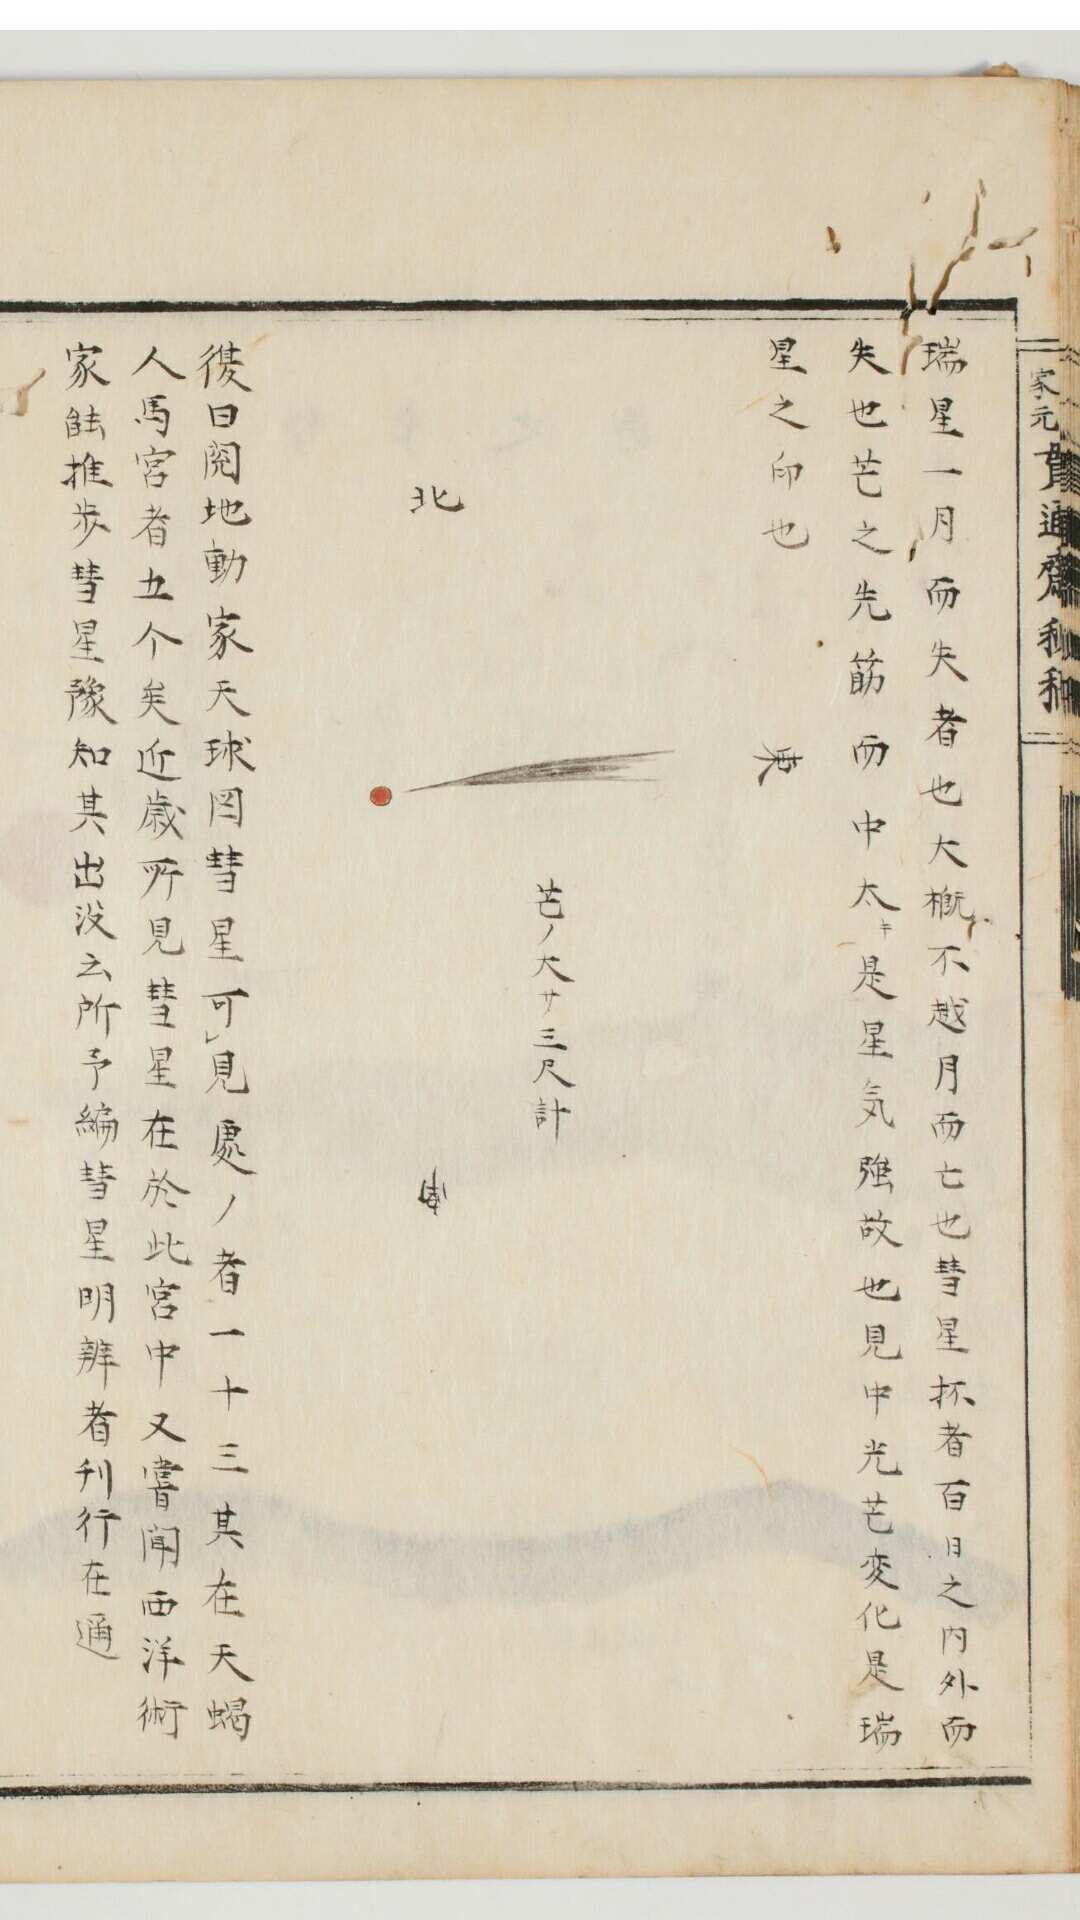 瑞星一月而失者也大概不越月而亡也彗星抔者百日之内外而
失也芒之先筋而中太キ是星気強故也見中光芒変化是瑞
星之印也
北
芒ノ大サ三尺計
後日閲地動家天球図彗星可レ見處ノ者一十三其在天蝎
人馬宮者五个矣近歳所見彗星在於此宮中又嘗聞西洋術
家能推歩彗星豫知其出没云所予編彗星明辨者刊行在通
家元
貫通齋